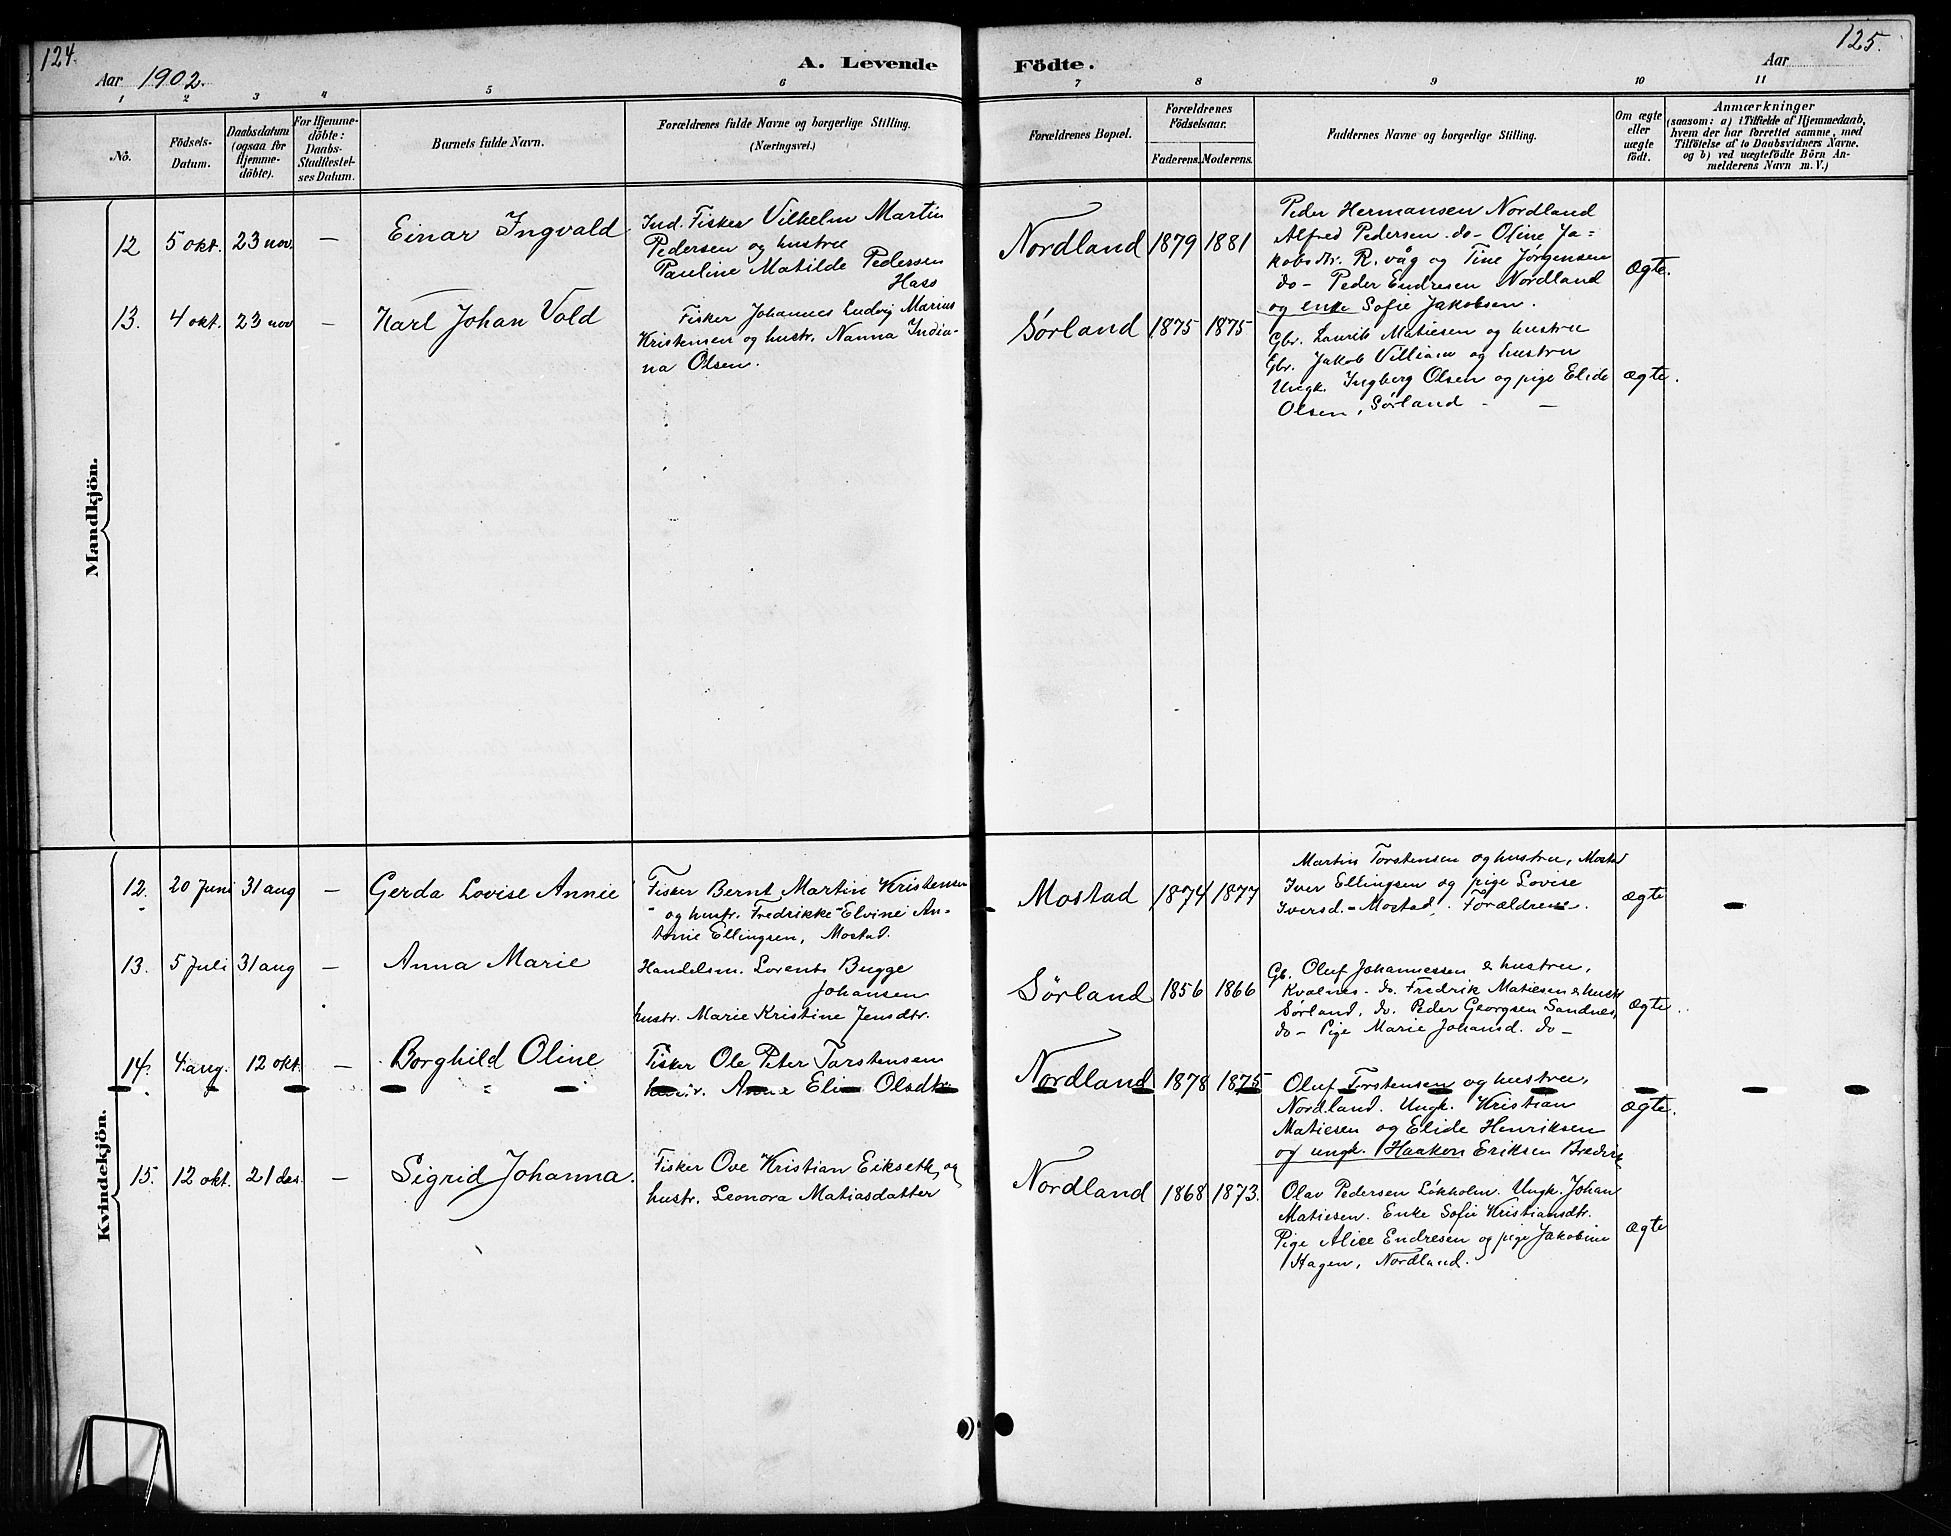 124.
125.
Aar 1902.
A. Levende Födte.
Aar
1 2 3 4 5 6 7 8 9 10 11
No.
Födsels-
Datum.
Daabsdatum
(ogsaa for
Hjemme-
döbte).
For Hjemme-
döbte:
Daabs-
Stadfæstel-
ses Datum.
Barnets fulde Navn.
Forældrenes fulde Navne og borgerlige Stilling.
(Næringsvei.)
Forældrenes Bopæl.
Forældrenes
Födselsaar.
Faderens. Moderens.
Faddernes Navne og borgerlige Stilling.
Om ægte
eller
uægte
födt.
Anmærkninger
(saasom: a) i Tilfælde af Hjemmedaab,
hvem der har forrettet samme, med
Tilföielse af to Daabsvidners Navne.
og b) ved uægtefödte Börn An-
melderens Navn m. V.)
Mandkjön.
12 5 okt. 23 nov. — Einar Ingvald
Ind. Fisker Vilhelm Martin
Pedersen og hustru
Pauline Matilde Pedersen
Hass
Nordland 1879 1881
Peder Hermansen Nordland
Alfred Pedersen do- Oline Ja=
kobsdtr. R.våg og Tine Jørgensen
do- Peder Endresen Nordland
og enke Sofie Jakobsen.
ægte.
13. 4 okt. 23 nov — Karl Johan Vold
Fisker Johannes Ludvig Marius
Kristensen og hustr. Nanna India-
na Olsen.
Sørland 1875 1875
Gbr. Laurits Matiesen og hustru
Gbr. Jakob Villiam og hustru
Ungk. Ingberg Olsen og pige Elide
Olsen, Sørland - —
ægte.
Kvindekjön.
12. 20 Juni 31 aug — Gerda Lovise Annie
Fisker Bernt Martin Kristensen
og hustr. Fredrikke Elvine An-
tonie Ellingsen, Mostad.
Mostad 1874 1877
Martin Torstensen og hustru, Mostad
Iver Ellingsen og pige Lovise
Iversd. - Mostad. Forældrene.
ægte
13. 5 Juli 31 aug — Anna Marie
Handelsm. Lorents Bugge
Johansen
hustr. Marie Kristine Jensdtr.
Sørland 1856 1866
Gb. Oluf Johannessen & hustru,
Kvalnes- do. Fredrik Matiesen & hustr
Sørland, do. Peder Georgsen Sandnes,
do- Pige Marie Johansd. do-
ægte
14. 4. aug. 12 okt. — Borghild Oline
Fisker Ole Peter Torstensen
hustr. Anne Eline Olsdtr
Nordland 1878 1875
Oluf Torstensen og hustru,
Nordland. Ungk. Kristian
Matiesen og Elide Henriksen
og ungk. Haakon Eriksen
ægte.
15. 12 okt. 21 des. — Sigrid Johanna.
Fisker Ove Kristian Eikseth, og
hustr. Leonora Matiasdatter
Nordland 1868 1873.
Olav Pedersen Løkholm. Ungk. Johan
Matiesen. Enke Sofie Kristiansdtr.
Pige Alice Endresen og pige Jakobine
Hagen, Nordland.
ægte